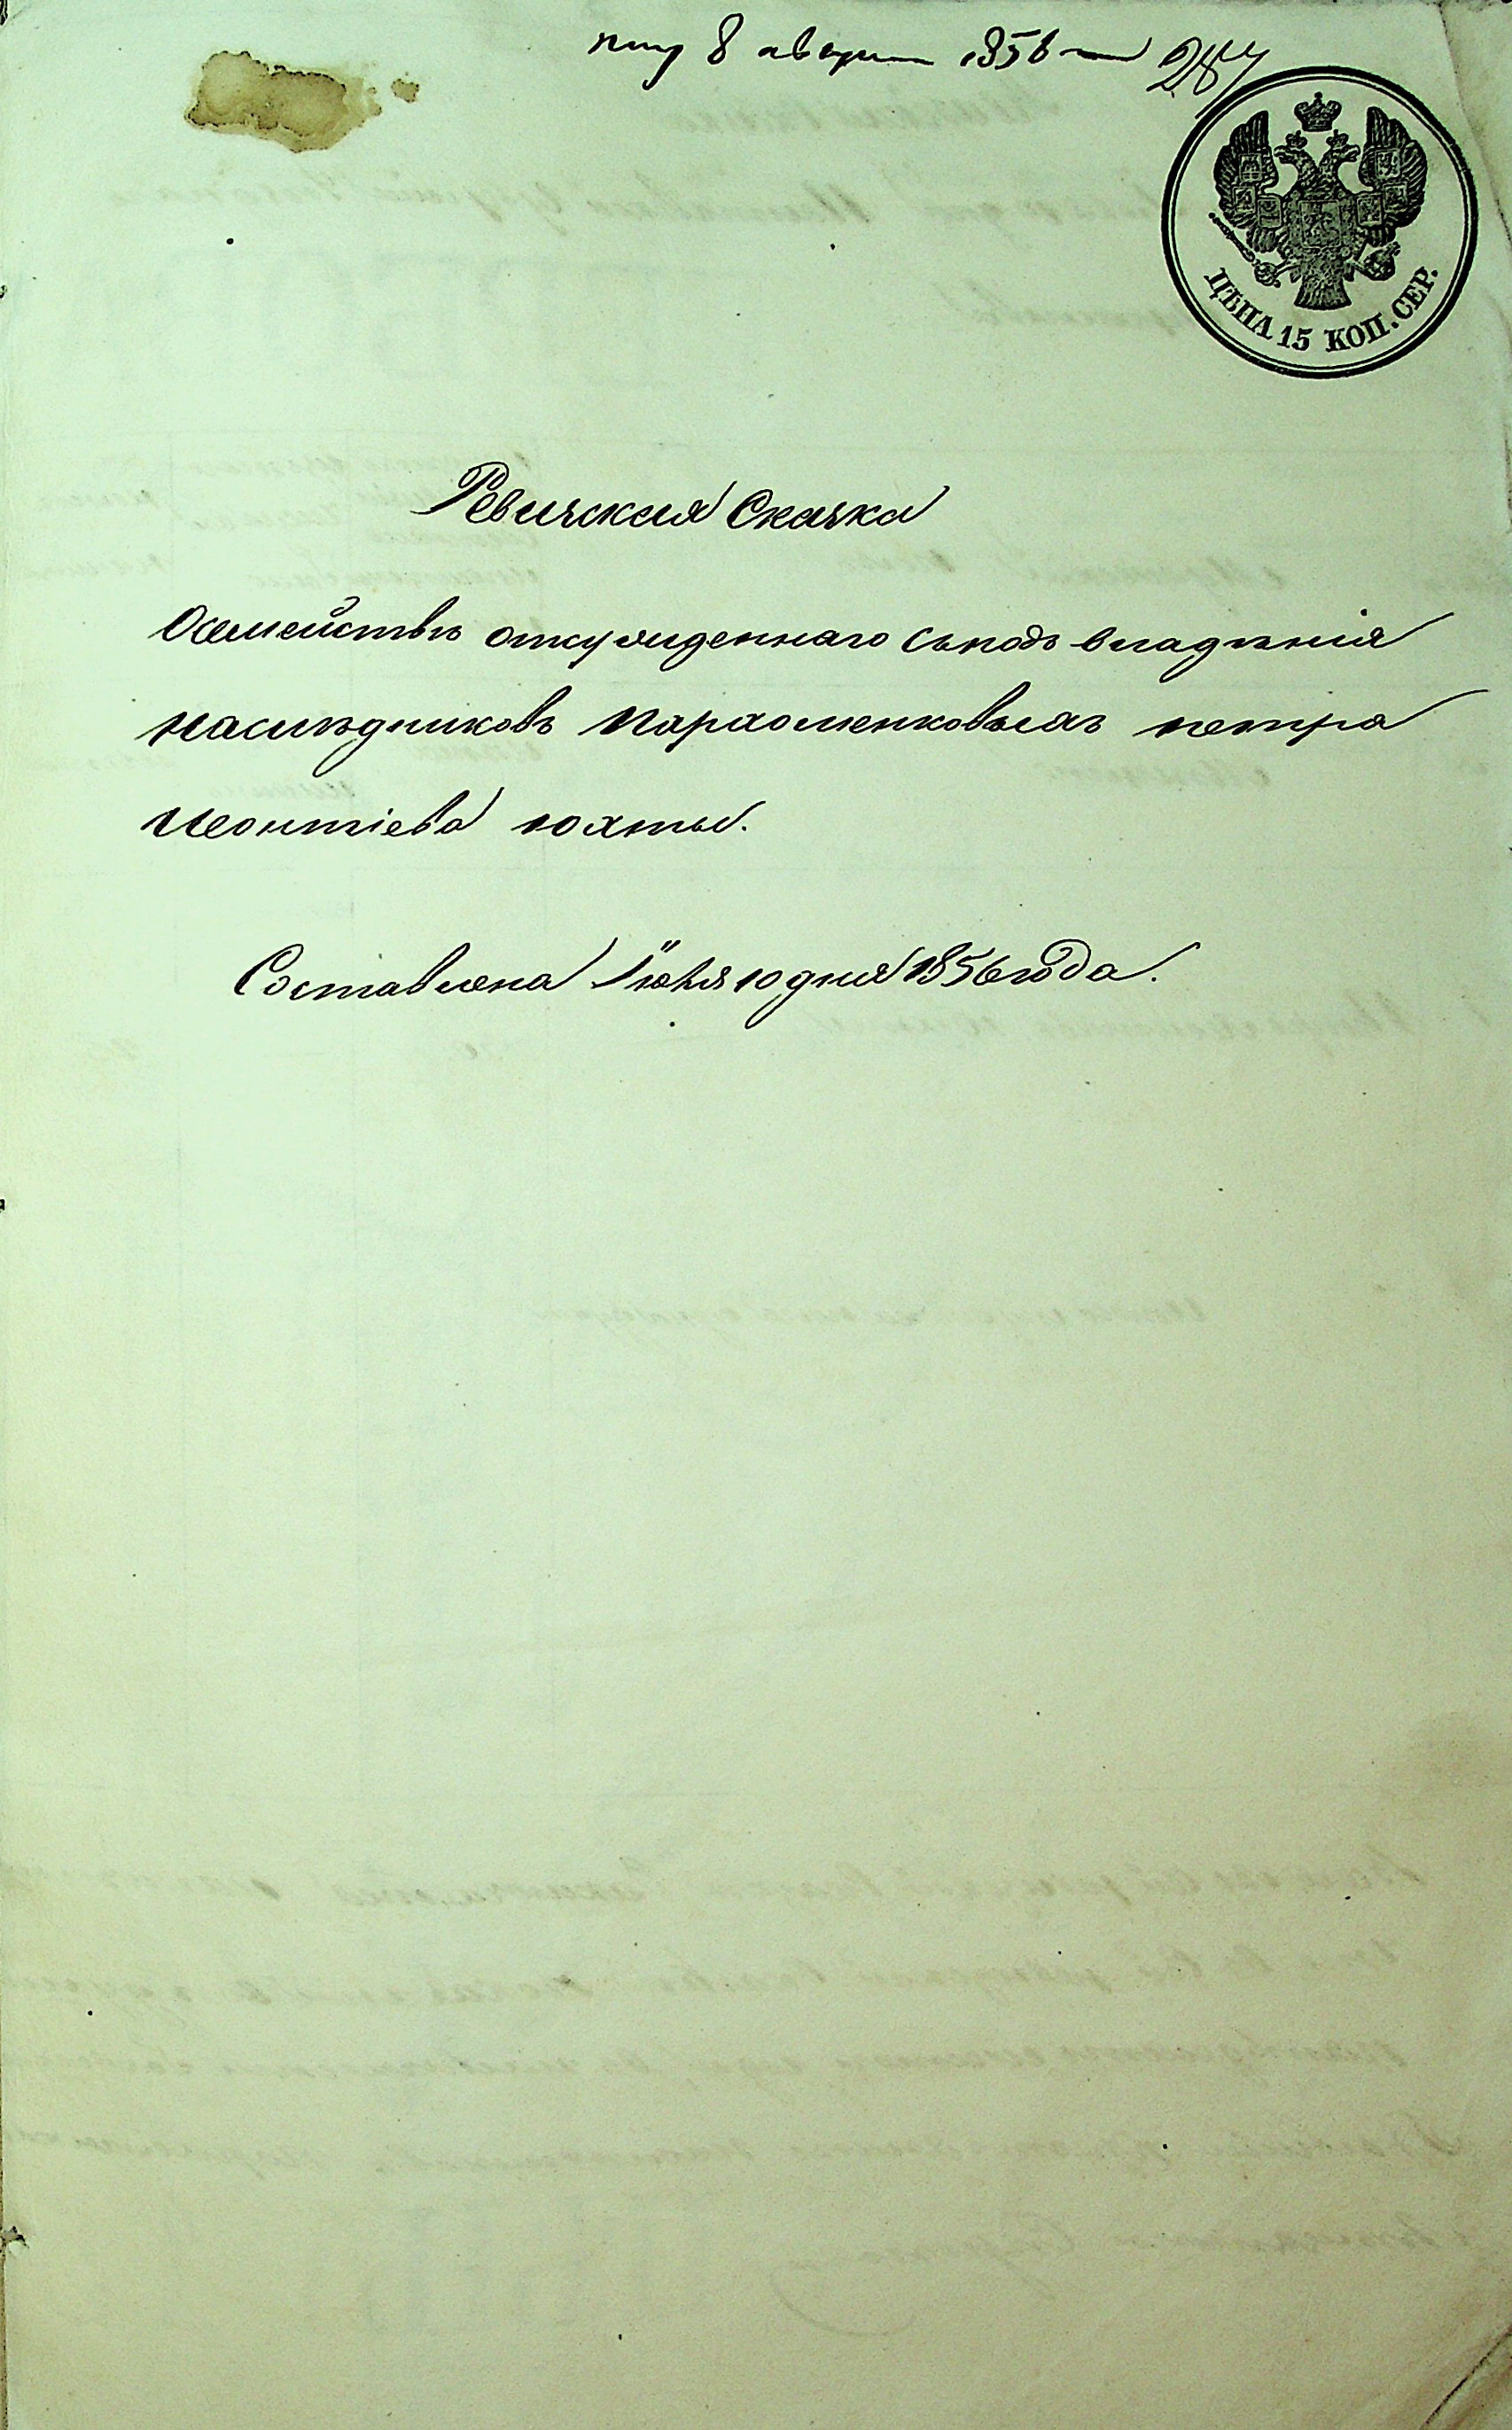 8 августа 1856 284
ЦѢНА 15 КОП. СЕР.
Ревизская Сказка
Осемействѣ отсужденнаго съподъ владѣнія
наслѣдниковъ Пархоменковыхъ петра
Леонтіева юхты.
Составлена Іюня 10 дня 1856 года.